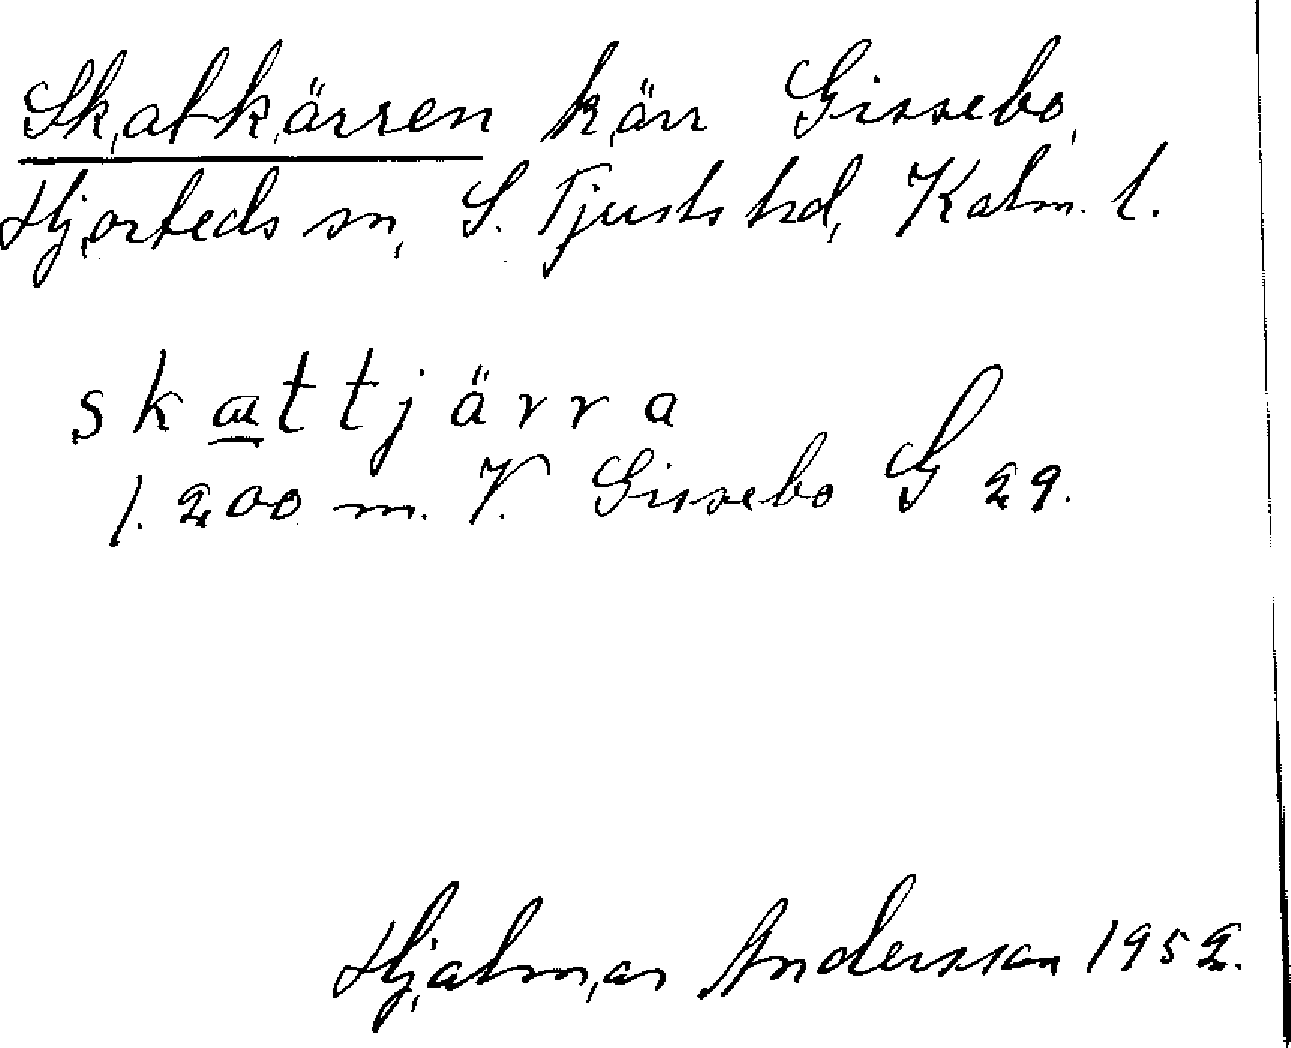 Skatkärren kärr Gissebo,
Hjorteds sn, S. Tjusts hd, Kalm. l.
skattjärra
1.200 m. V. Gissebo G 29.
Hjalmar Andersson 1952.